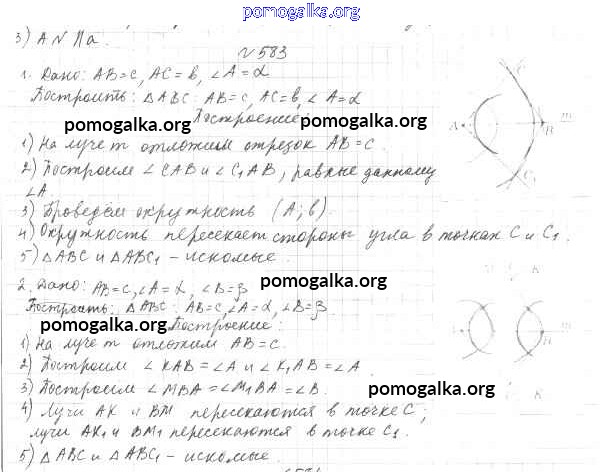 pomogalka.org
3) A N ∥ a.
№ 583
1. Дано: AB=c, AC=b, ∠A=α
Построить: △ABC: AB=c, AC=b, ∠A=α
Построение
pomogalka.org
pomogalka.org
1) На луче m отложим отрезок AB=c.
2) Построим ∠CAB и ∠C₁AB, равные данному
∠A.
3) Проведём окружность (A; b).
4) Окружность пересекает стороны угла в точках C и C₁.
5) △ABC и △ABC₁ - искомые.
pomogalka.org
2. Дано: AB=c, ∠A=α, ∠B=β
Построить: △ABC: AB=c, ∠A=α, ∠B=β
pomogalka.org
Построение:
1) На луче m отложим AB=c.
2) Построим ∠KAB=∠A и ∠K₁AB=∠A.
3) Построим ∠MBA=∠M₁BA=∠B.
pomogalka.org
4) Лучи AK и BM пересекаются в точке C;
лучи AK₁ и BM₁ пересекаются в точке C₁.
5) △ABC и △ABC₁ - искомые.
pomogalka.org
C
A
B
m
C₁
K
m
K